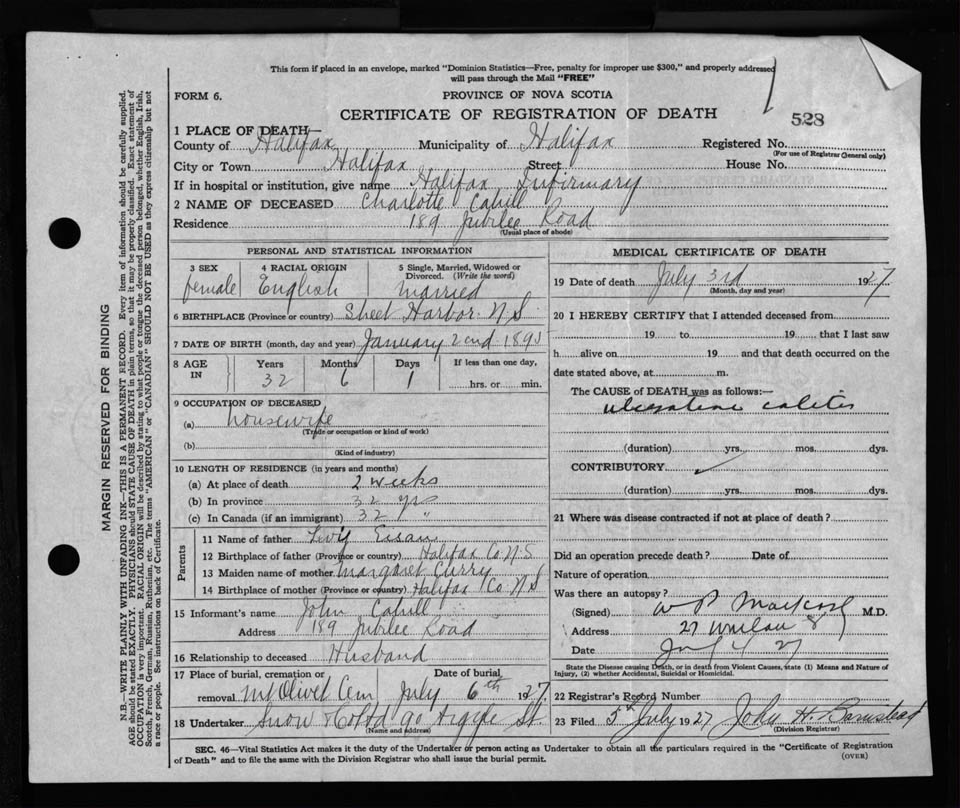 This form if placed in an envelope, marked "Dominion Statistics—Free, penalty for improper use $300," and properly addressed
will pass through the Mail "FREE"
FORM 6.
PROVINCE OF NOVA SCOTIA
CERTIFICATE OF REGISTRATION OF DEATH
528
1 PLACE OF DEATH—
County of Halifax Municipality of Halifax Registered No.
(For use of Registrar General only)
City or Town Halifax Street House No.
If in hospital or institution, give name Halifax Infirmary
2 NAME OF DECEASED Charlotte Cahill
Residence 189 Jubilee Road
(Usual place of abode)
PERSONAL AND STATISTICAL INFORMATION
3 SEX
female
4 RACIAL ORIGIN
English
5 Single, Married, Widowed or
Divorced. (Write the word)
married
6 BIRTHPLACE (Province or country) Sheet Harbor N.S.
7 DATE OF BIRTH (month, day and year) January 2nd 1895
8 AGE
IN
Years
32
Months
6
Days
1
If less than one day,
hrs. or min.
9 OCCUPATION OF DECEASED
(a) housewife
(Trade or occupation or kind of work)
(b)
(Kind of industry)
10 LENGTH OF RESIDENCE (in years and months)
(a) At place of death 2 weeks
(b) In province 32 yrs
(c) In Canada (if an immigrant) 32 "
Parents
11 Name of father Levi Eisan
12 Birthplace of father (Province or country) Halifax Co N.S
13 Maiden name of mother Margaret Curry
14 Birthplace of mother (Province or country) Halifax Co N S
15 Informant's name John Cahill
Address 189 Jubilee Road
16 Relationship to deceased Husband
17 Place of burial, cremation or Date of burial,
removal Mt Olivet Cem July 6th 1927
18 Undertaker Snow & Co Ltd 90 Argyle St.
(Name and address)
MEDICAL CERTIFICATE OF DEATH
19 Date of death July 3rd 1927
(Month, day and year)
20 I HEREBY CERTIFY that I attended deceased from
19 to 19 that I last saw
h alive on 19 and that death occurred on the
date stated above, at m.
The CAUSE of DEATH was as follows:—
ulcerative colitis
(duration) yrs. mos. dys.
CONTRIBUTORY
(duration) yrs. mos. dys.
21 Where was disease contracted if not at place of death?
Did an operation precede death? Date of
Nature of operation
Was there an autopsy?
(Signed) M.D.
Address 27
Date July 4 27
State the Disease causing Death, or in death from Violent Causes, state (1) Means and Nature of
Injury, (2) whether Accidental, Suicidal or Homicidal.
22 Registrar's Record Number
23 Filed 5th July 1927 John H. Barnstead
(Division Registrar)
SEC. 46—Vital Statistics Act makes it the duty of the Undertaker or person acting as Undertaker to obtain all the particulars required in the "Certificate of Registration
of Death" and to file the same with the Division Registrar who shall issue the burial permit.
(OVER)
MARGIN RESERVED FOR BINDING
N.B.—WRITE PLAINLY WITH UNFADING INK—THIS IS A PERMANENT RECORD. Every item of information should be carefully supplied.
AGE should be stated EXACTLY. PHYSICIANS should STATE CAUSE OF DEATH in plain terms, so that it may be properly classified. Exact statement of
OCCUPATION is very important. RACIAL ORIGIN will be described by stating to what people or tongue the deceased person belonged, whether English, Irish,
Scotch, French, German, Russian, Ruthenian, etc. The terms "AMERICAN" or "CANADIAN" SHOULD NOT BE USED as they express citizenship but not
a race or people. See instructions on back of Certificate.